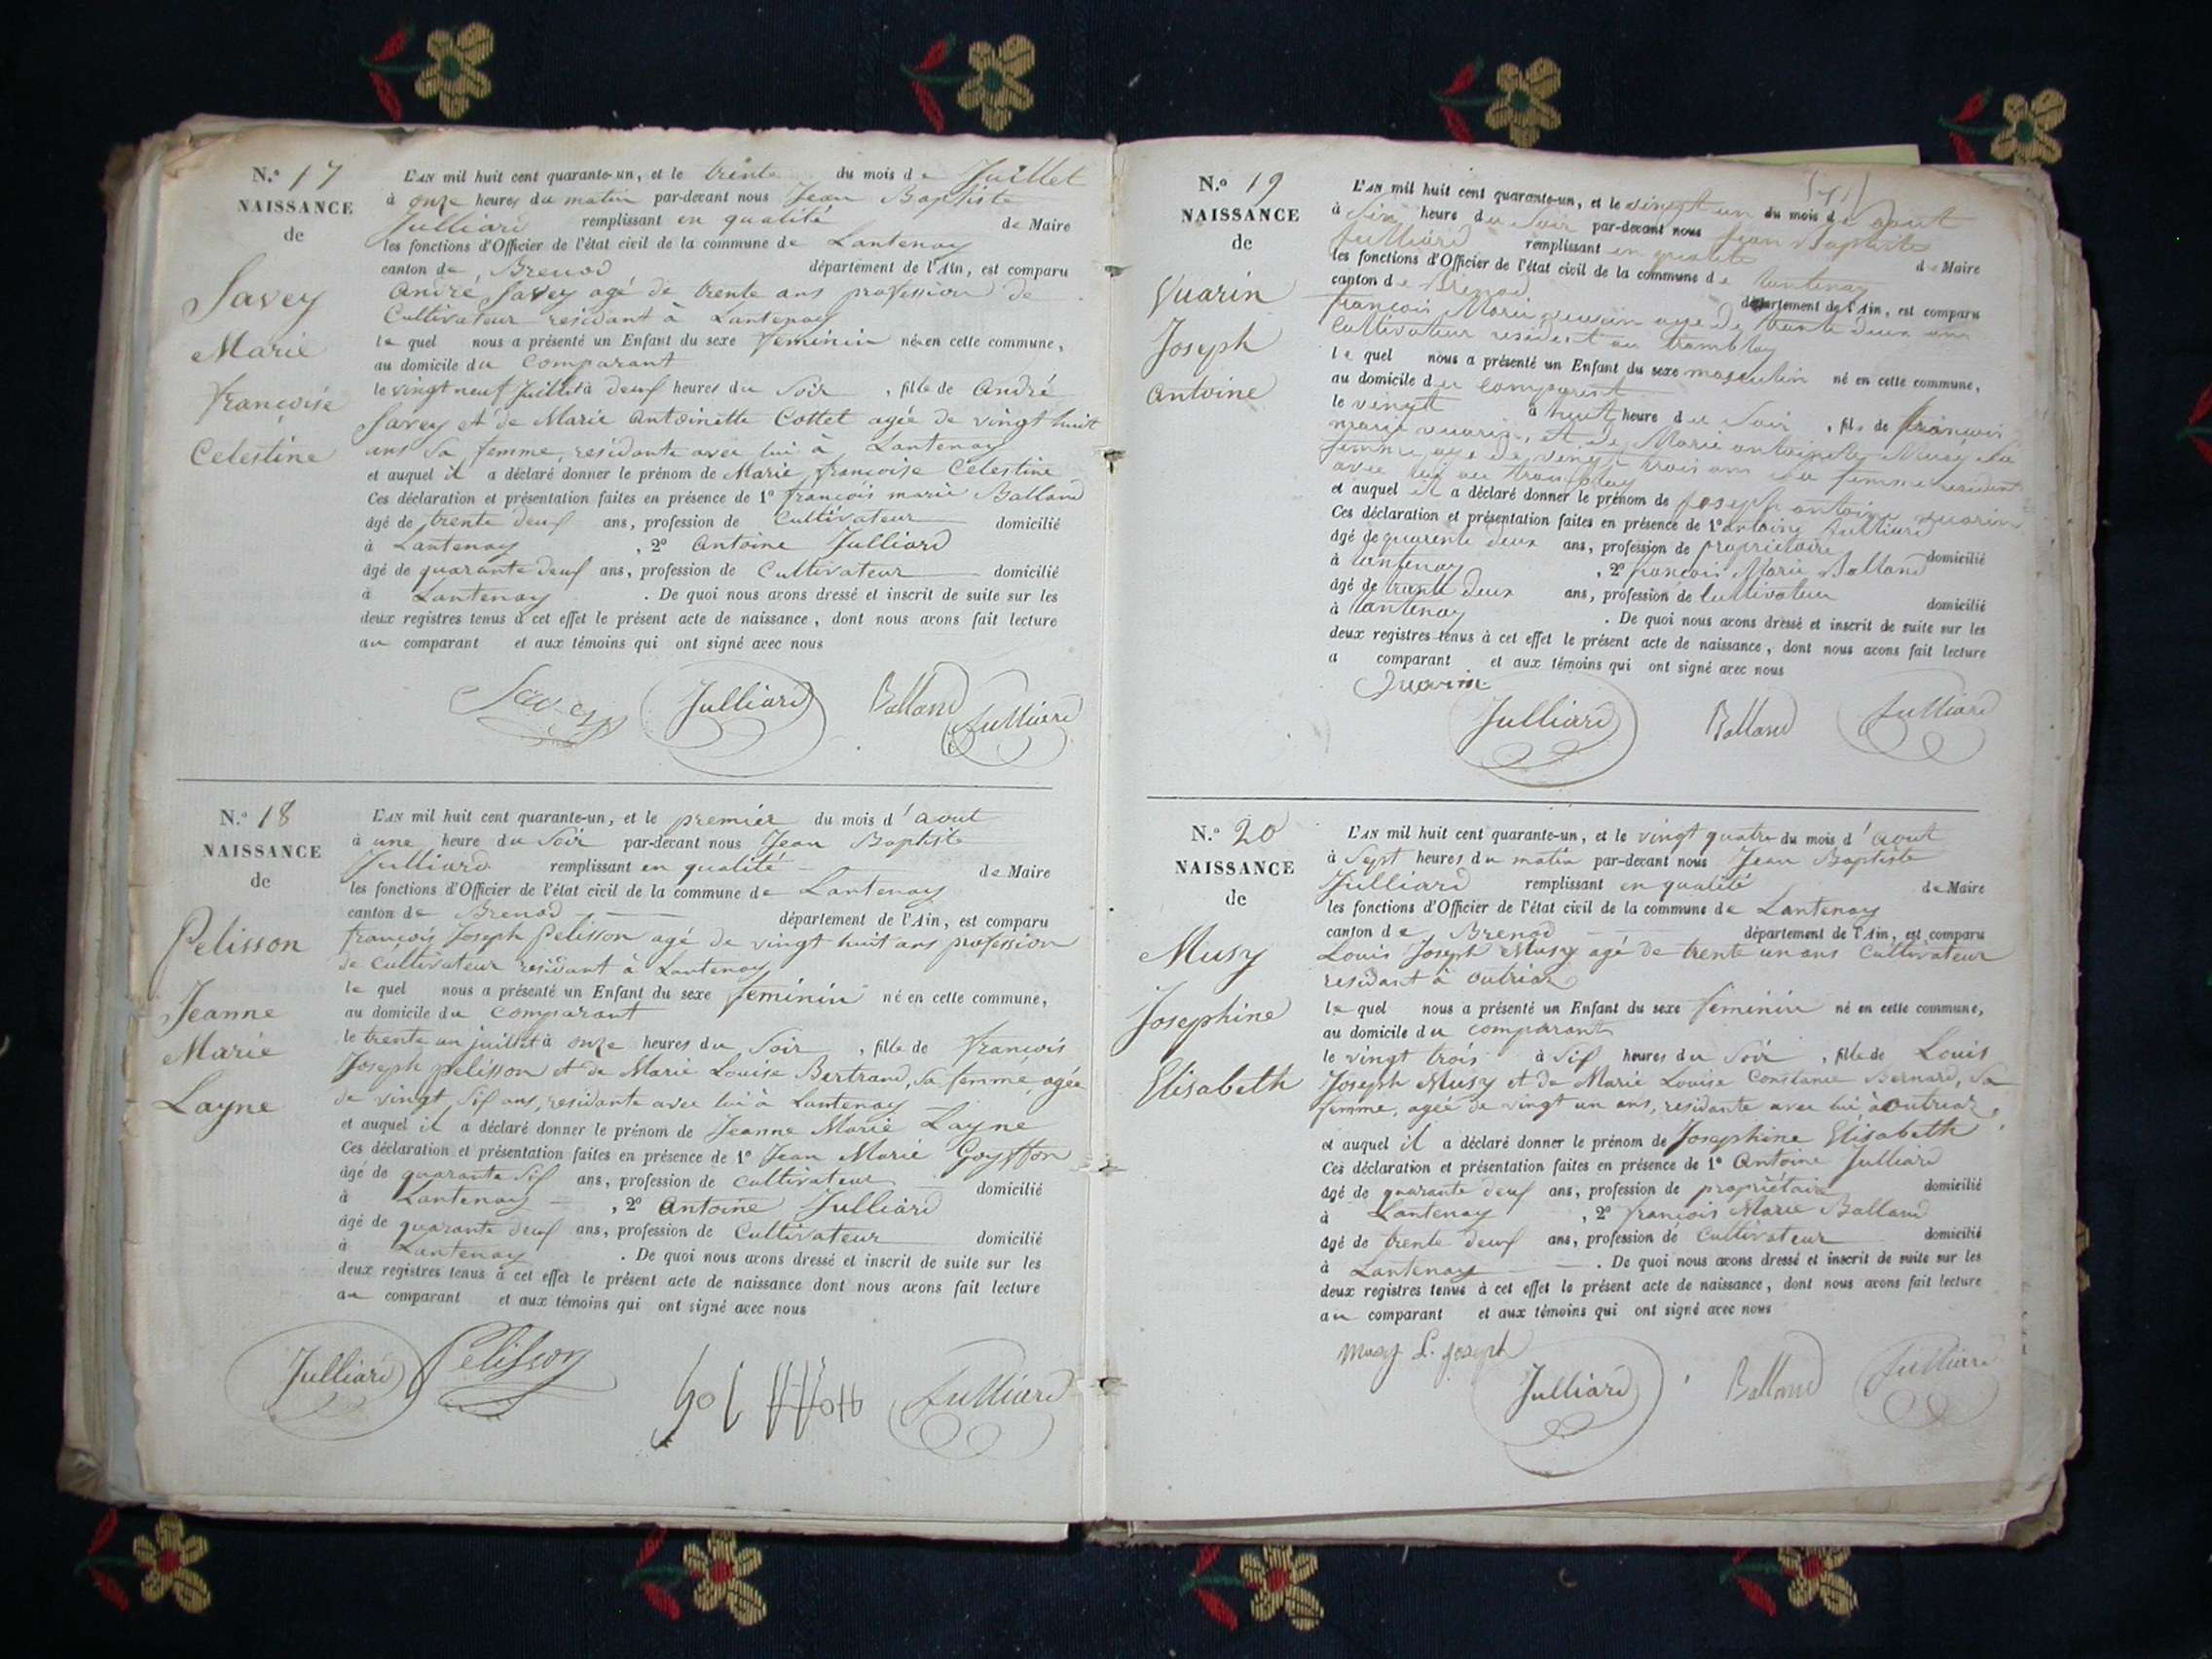 N.º 17
NAISSANCE
de
Savey
Marie
françoise
Celestine
L'AN mil huit cent quarante-un, et le trente du mois de Juillet
à onze heures du matin par-devant nous Jean Baptiste
Julliard remplissant en qualité de Maire
les fonctions d'Officier de l'état civil de la commune de Lantenay
canton de Brenod département de l'Ain, est comparu
André Savey agé de trente ans profession de
Cultivateur residant à Lantenay
le quel nous a présenté un Enfant du sexe feminin né en cette commune,
au domicile du comparant
le vingt neuf Juillet à deux heures du Soir , fille de André
Savey et de Marie Antoinette Cottet agée de vingt huit
ans sa femme, residante avec lui à Lantenay
et auquel il a déclaré donner le prénom de Marie françoise Celestine
Ces déclaration et présentation faites en présence de 1º françois marie Balland
âgé de trente deux ans, profession de Cultivateur domicilié
à Lantenay , 2º Antoine Julliard
âgé de quarante deux ans, profession de Cultivateur domicilié
à Lantenay . De quoi nous avons dressé et inscrit de suite sur les
deux registres tenus à cet effet le présent acte de naissance, dont nous avons fait lecture
au comparant et aux témoins qui ont signé avec nous
Savey Julliard Balland Julliard
N.º 18
NAISSANCE
de
Pelisson
Jeanne
Marie
Layne
L'AN mil huit cent quarante-un, et le premier du mois d'aout
à une heure du Soir par-devant nous Jean Baptiste
Julliard remplissant en qualité de Maire
les fonctions d'Officier de l'état civil de la commune de Lantenay
canton de Brenod département de l'Ain, est comparu
françois Joseph Pelisson agé de vingt huit ans profession
de cultivateur residant à Lantenay
le quel nous a présenté un Enfant du sexe feminin né en cette commune,
au domicile du comparant
le trente un juillet à onze heures du Soir , fille de françois
Joseph pelisson et de Marie Louise Bertrand, sa femme, agée
de vingt six ans, residante avec lui à Lantenay
et auquel il a déclaré donner le prénom de Jeanne Marie Layne
Ces déclaration et présentation faites en présence de 1º Jean Marie Goyffon
âgé de quarante six ans, profession de cultivateur domicilié
à Lantenay , 2º Antoine Julliard
âgé de quarante deux ans, profession de Cultivateur domicilié
à Lantenay . De quoi nous avons dressé et inscrit de suite sur les
deux registres tenus à cet effet le présent acte de naissance dont nous avons fait lecture
au comparant et aux témoins qui ont signé avec nous
Julliard Pelisson Julliard
N.º 19
NAISSANCE
de
Vuarin
Joseph
Antoine
L'AN mil huit cent quarante-un, et le vingt un du mois de aout
à six heure du Soir par-devant nous Jean Baptiste
Julliard remplissant en qualité de Maire
les fonctions d'Officier de l'état civil de la commune de Lantenay
canton de Brenod département de l'Ain, est comparu
françois Marie vuarin age de trante deux ans
Cultivateur resident au tramblay
le quel nous a présenté un Enfant du sexe masculin né en cette commune,
au domicile du comparent
le vingt à huit heure du Soir , fils de françois
marie vuarin, et de Marie antoinette Musy sa
femme age de vengt trois ans sa femme resident
avec lui au tramblay
et auquel il a déclaré donner le prénom de joseph antoine vuarin
Ces déclaration et présentation faites en présence de 1º antoine Julliard
âgé de quarente deux ans, profession de proprietaire domicilié
à lantenay , 2º françois Marie Balland
âgé de trante deux ans, profession de Cultivateur domicilié
à lantenay . De quoi nous avons dressé et inscrit de suite sur les
deux registres tenus à cet effet le présent acte de naissance, dont nous avons fait lecture
a comparant et aux témoins qui ont signé avec nous
Vuarin
Julliard Balland Julliard
N.º 20
NAISSANCE
de
Musy
Josephine
Elisabeth
L'AN mil huit cent quarante-un, et le vingt quatre du mois d'aout
à Sept heures du matin par-devant nous Jean Baptiste
Julliard remplissant en qualité de Maire
les fonctions d'Officier de l'état civil de la commune de Lantenay
canton de Brenod département de l'Ain, est comparu
Louis Joseph Musy agé de trente un ans Cultivateur
residant à outriaz
le quel nous a présenté un Enfant du sexe feminin né en cette commune,
au domicile du comparant
le vingt trois à Six heures du Soir , fille de Louis
Joseph Musy et de Marie Louise Constance Bernard, sa
femme, agée de vingt un ans, residante avec lui, à outriaz,
et auquel il a déclaré donner le prénom de Josephine Elisabeth
Ces déclaration et présentation faites en présence de 1º Antoine Julliard
âgé de quarante deux ans, profession de proprietaire domicilié
à Lantenay , 2º françois Marie Balland
âgé de trente deux ans, profession de Cultivateur domicilié
à Lantenay . De quoi nous avons dressé et inscrit de suite sur les
deux registres tenus à cet effet le présent acte de naissance, dont nous avons fait lecture
au comparant et aux témoins qui ont signé avec nous
Musy L. joseph
Julliard Balland Julliard